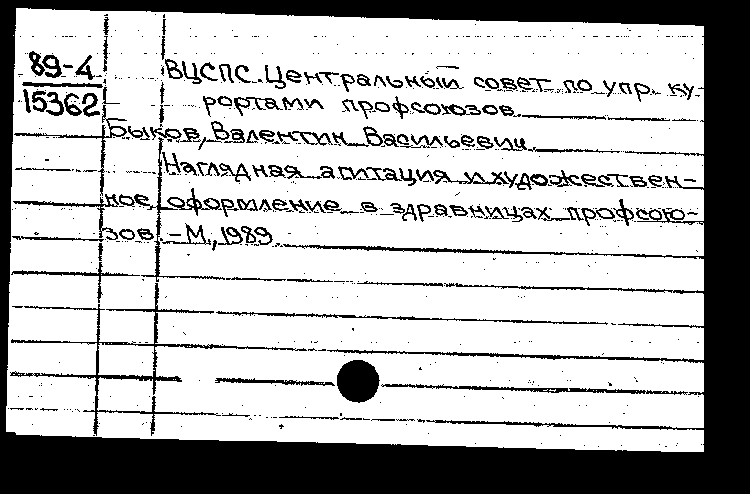 89-4
15362
ВЦСПС. Центральный совет по упр. ку-
рортами профсоюзов.
Быков, Валентин Васильевич.
Наглядная агитация и художествен-
ное оформление в здравницах профсою-
зов. - М., 1989